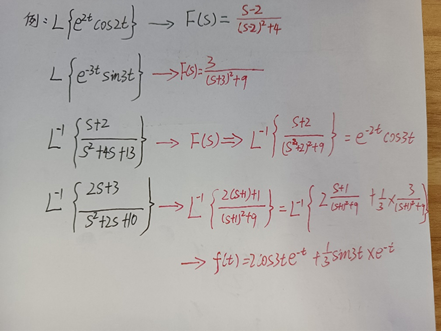 例: L{e^{2t} cos2t} → F(s) = \frac{s-2}{(s-2)^2+4}
L{e^{-3t} sin3t} → F(s) = \frac{3}{(s+3)^2+9}
L^{-1}{\frac{s+2}{s^2+4s+13}} → F(s) ⇒ L^{-1}{\frac{s+2}{(s^2+2)^2+9}} = e^{-2t} cos3t
L^{-1}{\frac{2s+3}{s^2+2s+10}} → L^{-1}{\frac{2(s+1)+1}{(s+1)^2+9}} = L^{-1}{2\frac{s+1}{(s+1)^2+9} + \frac{1}{3} × \frac{3}{(s+1)^2+9}}
→ f(t) = 2cos3te^{-t} + \frac{1}{3} sin3t × e^{-t}